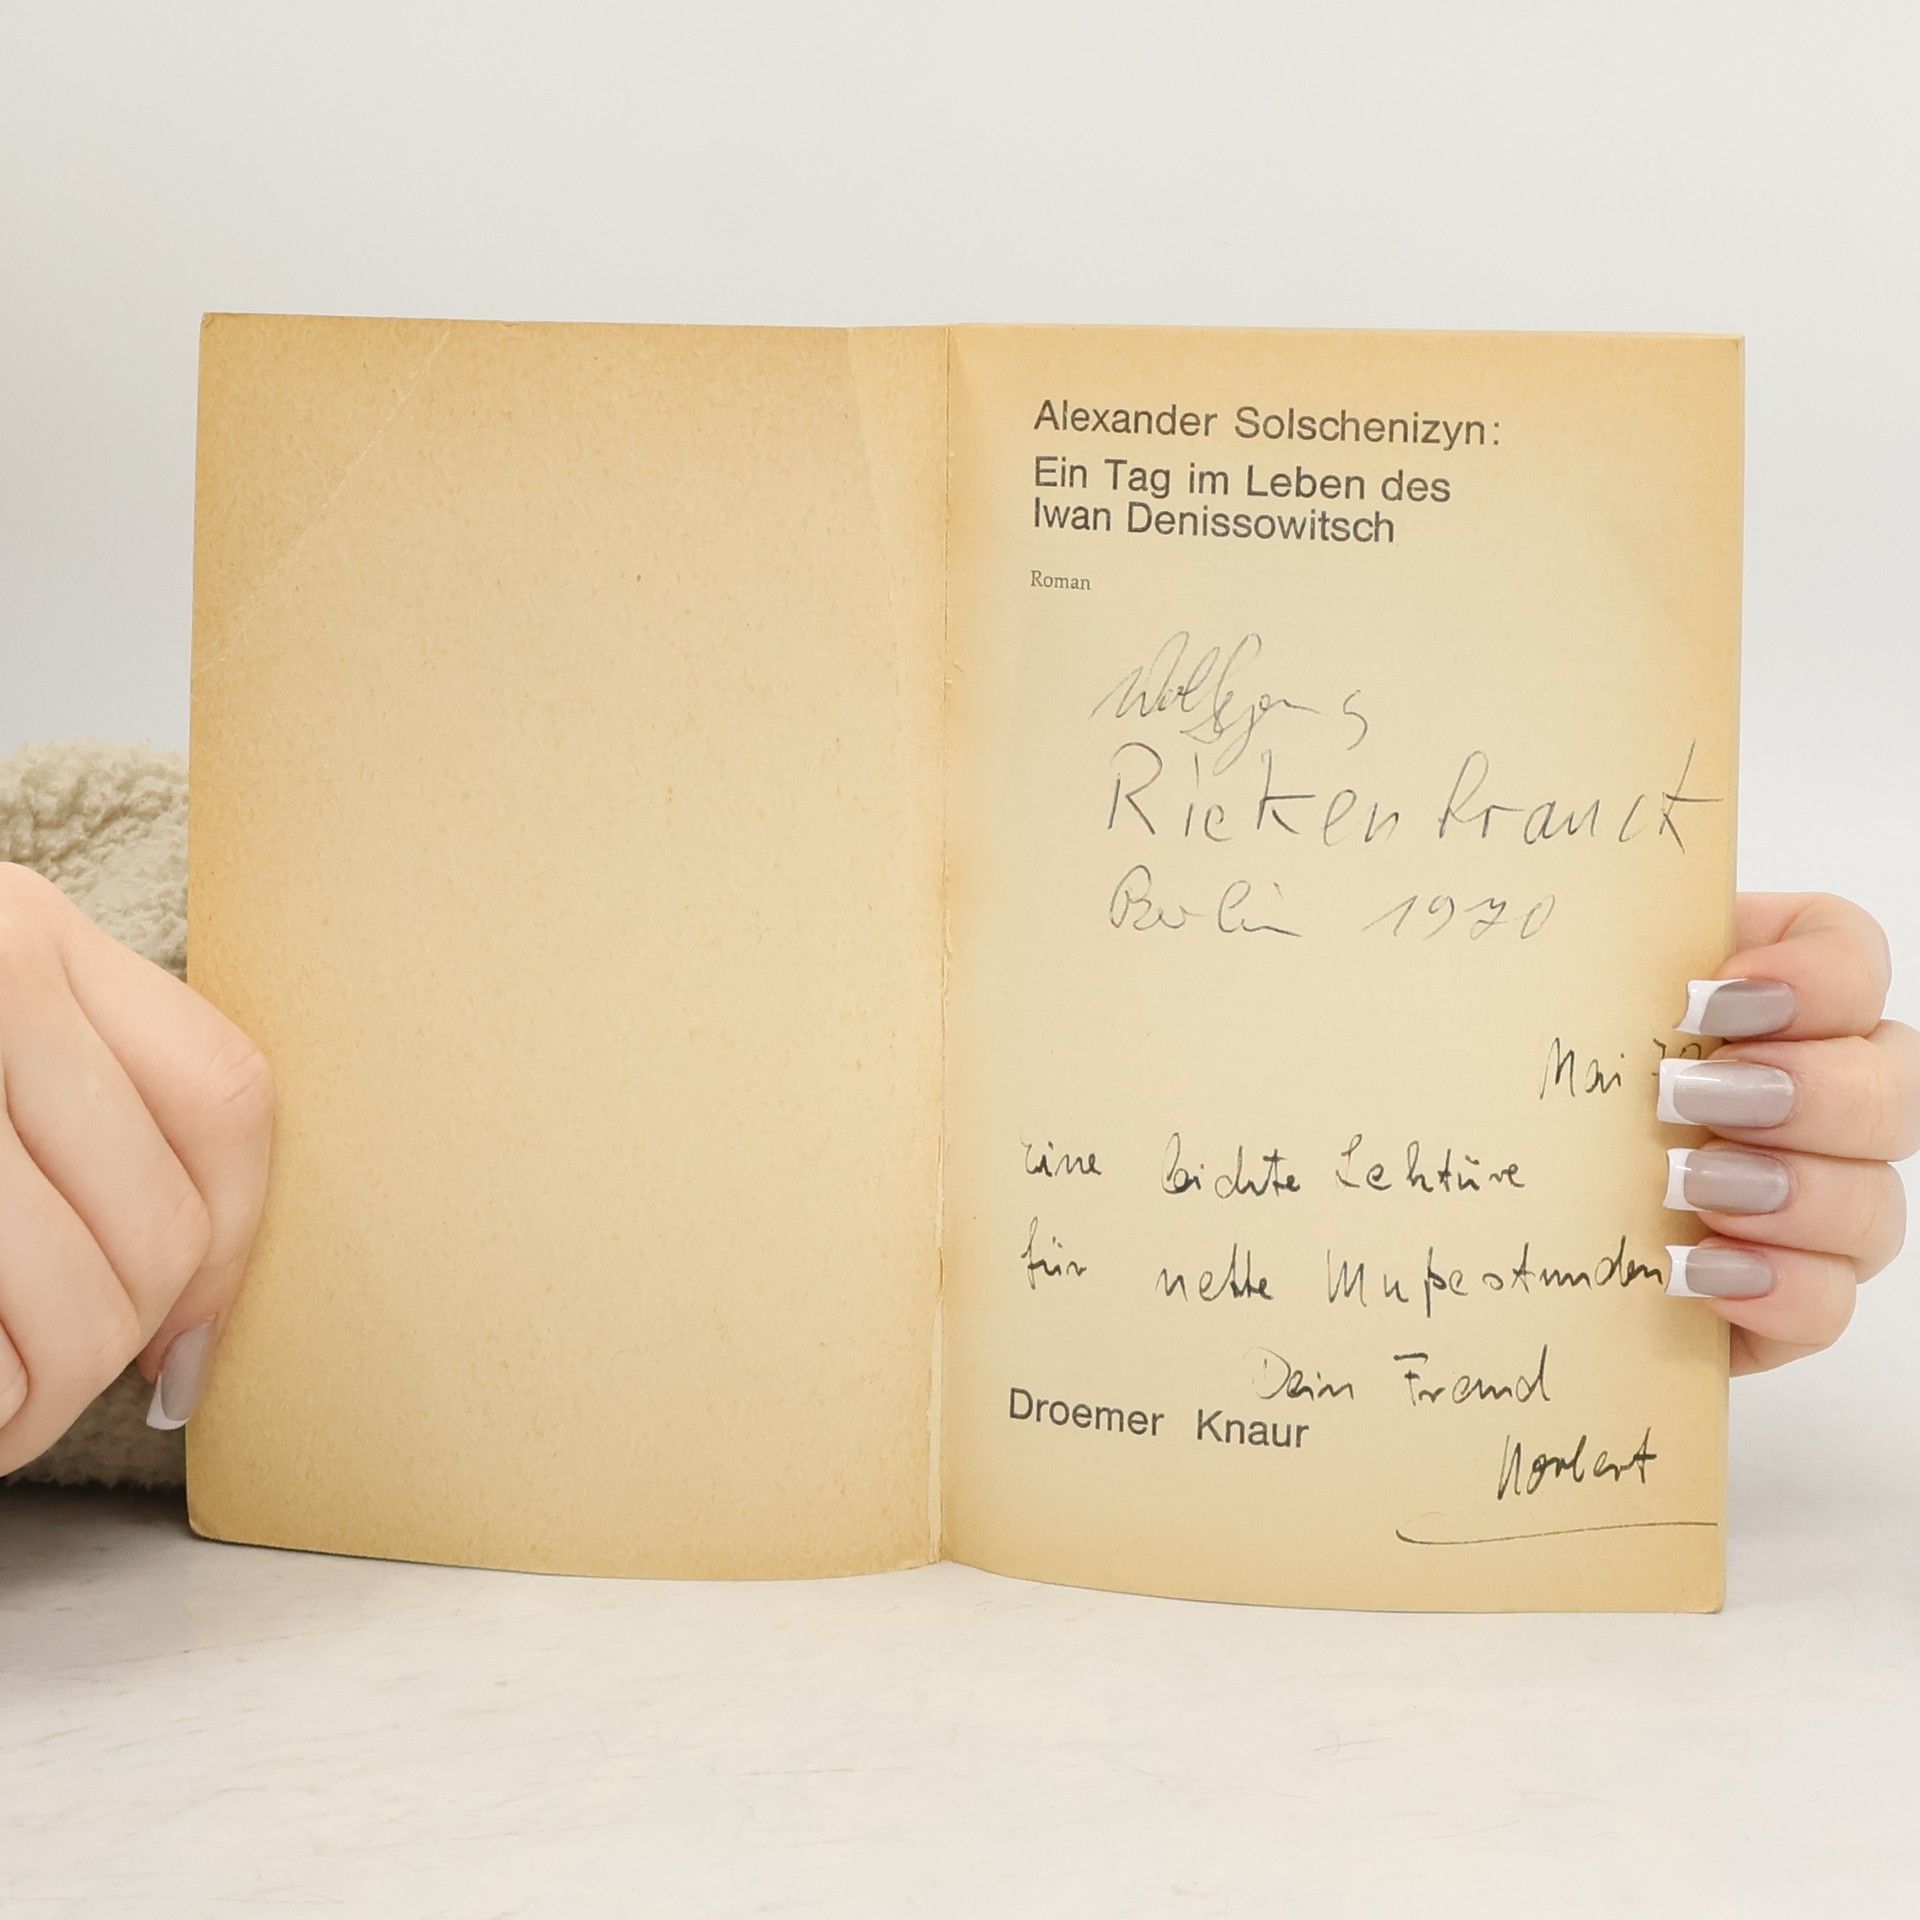 Alexander Solschenizyn:
Ein Tag im Leben des
Iwan Denissowitsch
Roman
Wolfgang
Rickenbrauck
Berlin 1970
Mai 70
Eine leichte Lektüre
für nette Mußestunden
Dein Freund
Droemer Knaur
Norbert